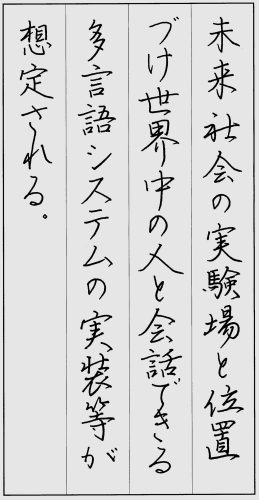 未来社会の実験場と位置
づけ世界中の人と会話できる
多言語システムの実装等が
想定される。